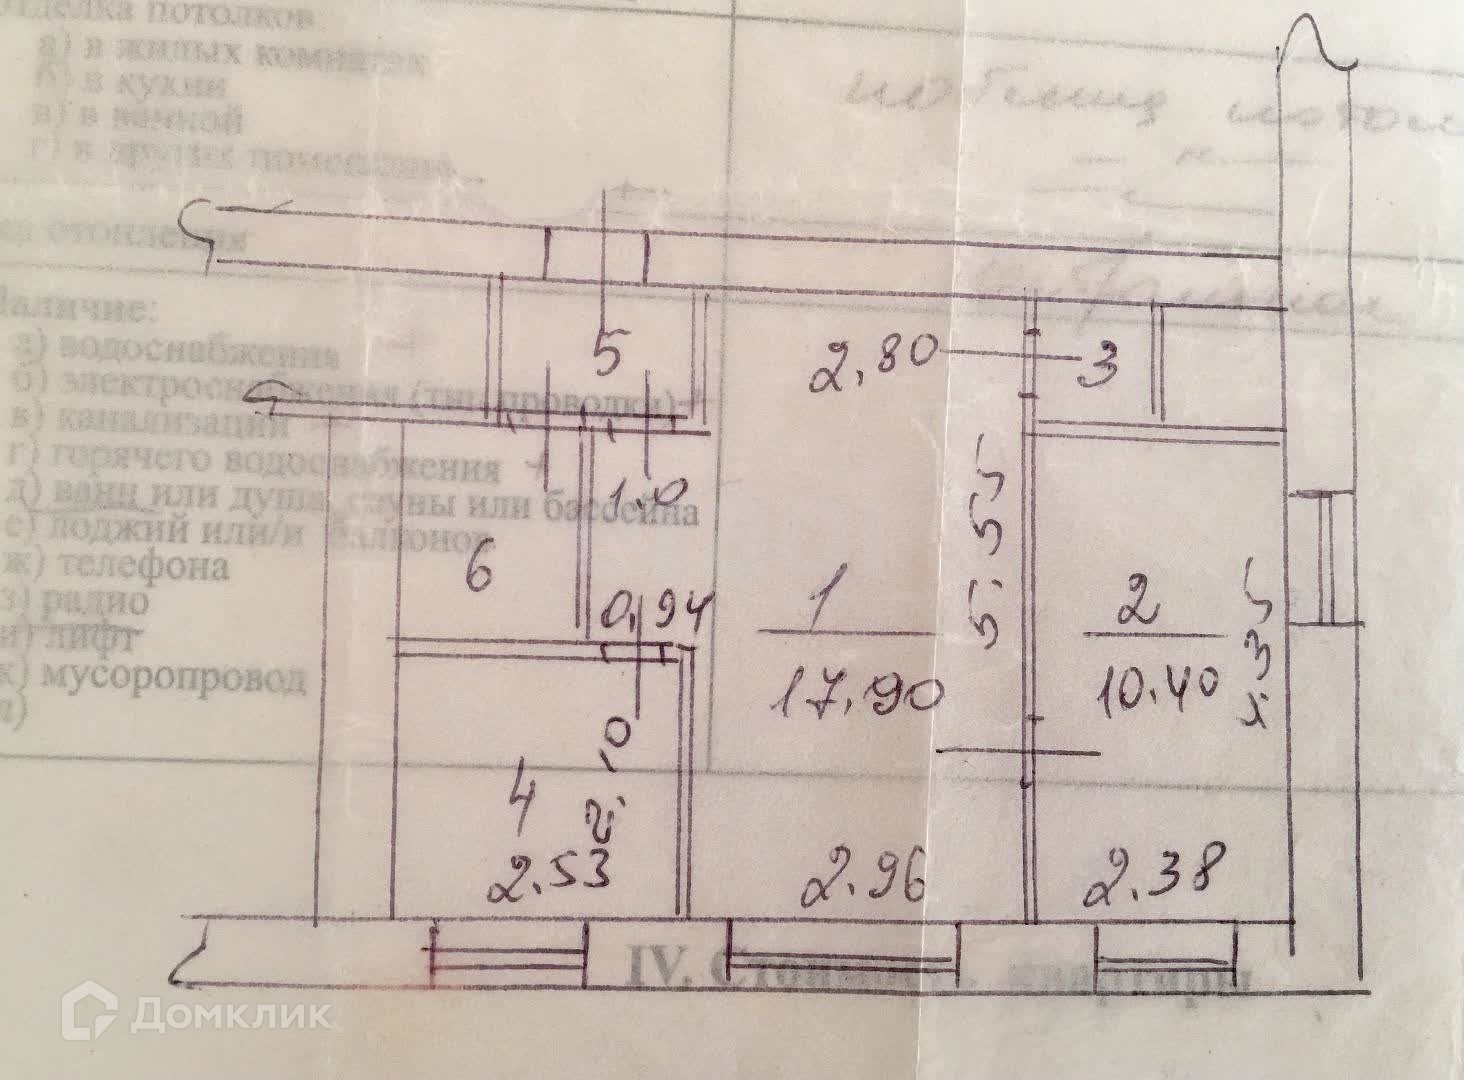 отделка потолков:
а) в жилых комнатах
б) в кухни
в) в ванной
г) в других
отопления
Наличие:
а) водоснабжения
б) электроснабжения (тип проводки)
в) канализации
г) горячего водоснабжения +
д) ванн или душа, сауны или бассейна
е) лоджий или/и балконов
ж) телефона
з) радио
и) лифт
к) мусоропровод
л)
5
2.80
3
1.0
5.55
6
0.94
1
17.90
2
10.40
4
2.10
2.53
2.96
2.38
IV. Стоимость квартиры
Домклик